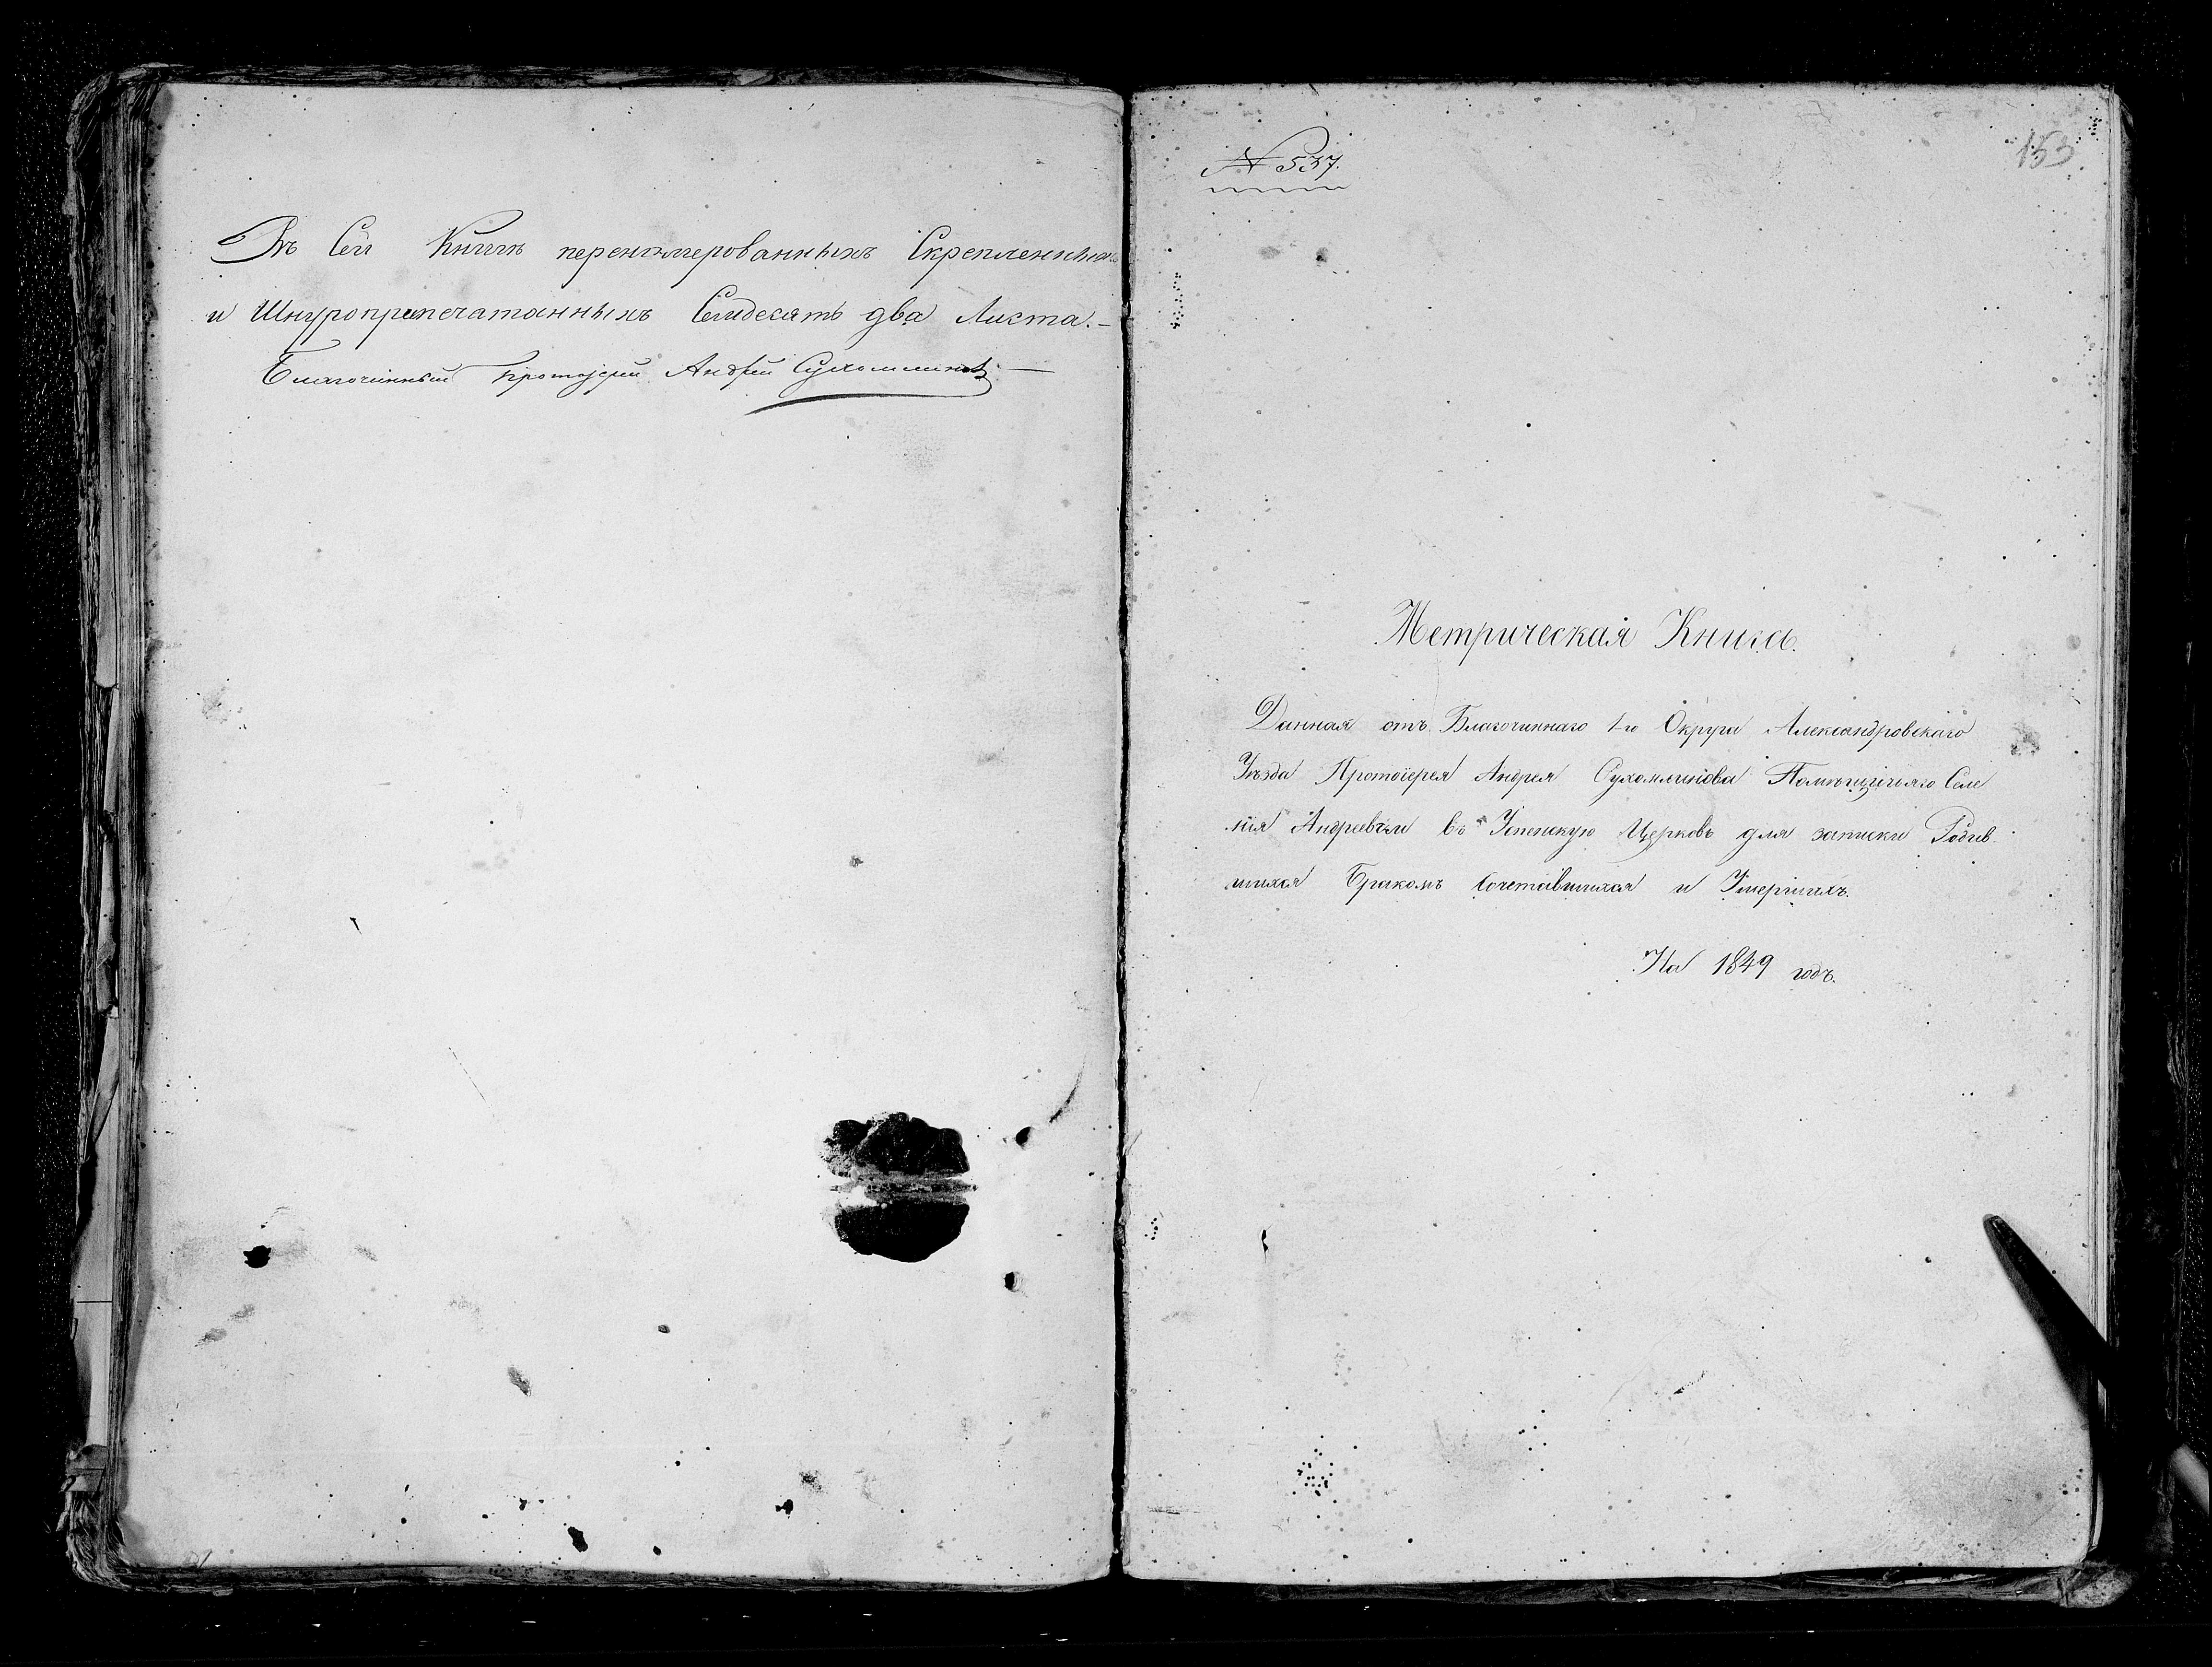 Въ Сей Книгѣ перенумерованныхъ Скрепленныхъ
и Шнуроприпечатанныхъ Семдесятъ два Листа.—
Благочинный Протоіерей Андрей Сухомлиновъ —
№ 537.
153
Метрическая Книга.
Данная отъ Благочиннаго 1-го Округа Александровскаго
Уѣзда Протоіерея Андрея Сухомлинова Помѣщичьяго Селе
нія Андреевки въ Успенскую Церковь для записки Родив
шихся Бракомъ Сочетавшихся и Умершихъ.
На 1849 годъ.